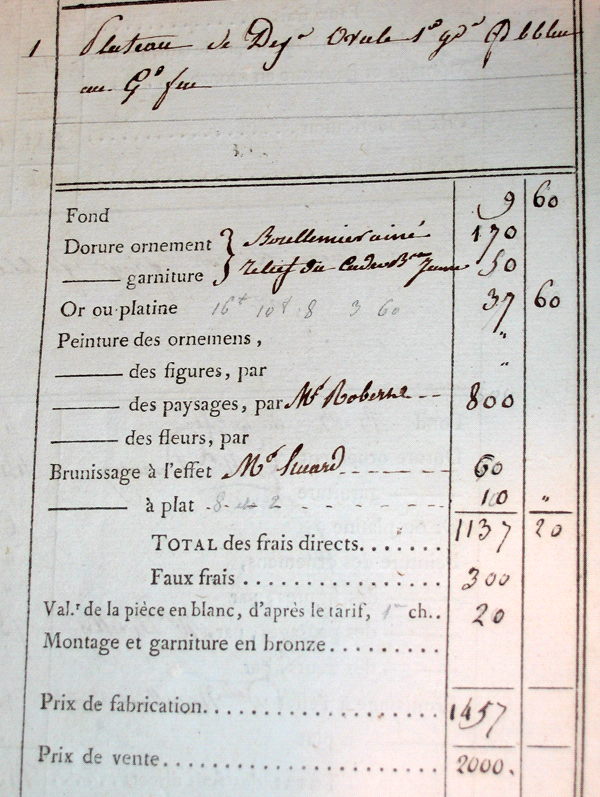 1 Plateau de Dej.r Ovale 1.e gd.r fd bleu
au Gd feu
Fond 9 60
Dorure ornement } Boullemier ainé 170
——— garniture relief du Cadre 50
Or ou platine 16 10 8 3 60 37 60
Peinture des ornemens, "
——— des figures, par "
——— des paysages, par Mr Robert -- 800
——— des fleurs, par
Brunissage à l'effet Me 60
——— à plat 8 2 10 "
TOTAL des frais directs....... 1137 20
Faux frais .............. 300
Val.r de la pièce en blanc, d'après le tarif, 1re ch.. 20
Montage et garniture en bronze.........
Prix de fabrication................... 1457
Prix de vente....................... 2000.